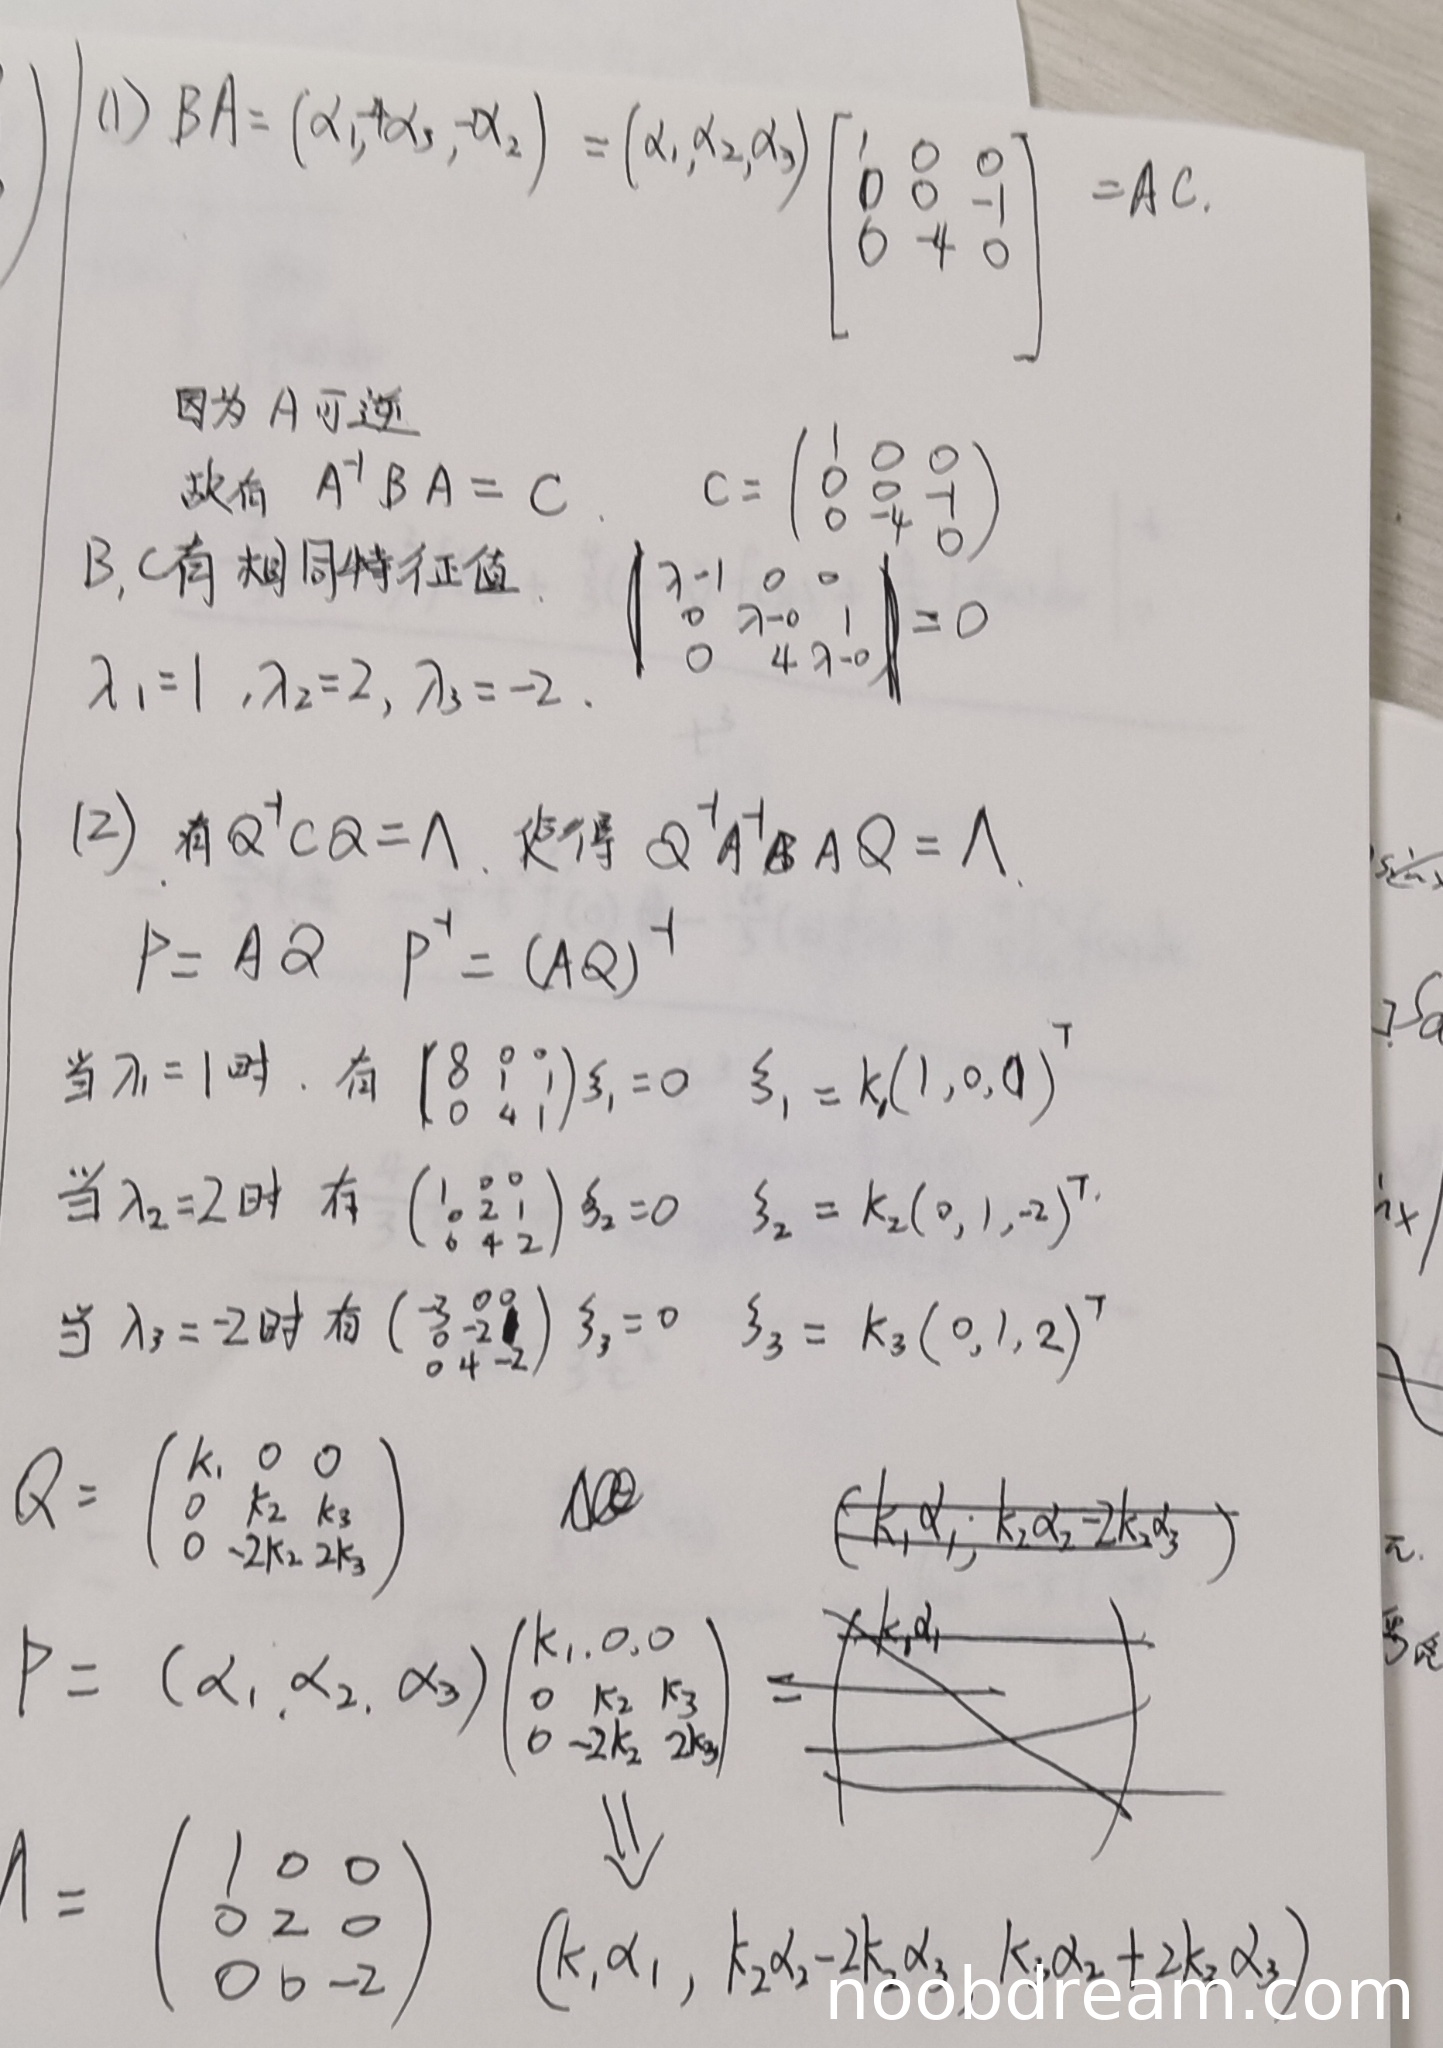 (1) BA = (α₁, -4α₃, -α₂) = (α₁, α₂, α₃) [1 0 0; 0 0 -1; 0 -4 0] = AC.
因为 A 可逆
故有 A⁻¹BA = C. C = (1 0 0; 0 0 -1; 0 -4 0)
B, C有相同特征值. |λ-1 0 0; 0 λ-0 1; 0 4 λ-0| = 0
λ₁=1, λ₂=2, λ₃=-2.
(2). 有 Q⁻¹CQ = Λ. 使得 Q⁻¹A⁻¹BAQ = Λ.
P = AQ P⁻¹ = (AQ)⁻¹
当 λ₁=1时. 有 (0 0 0; 0 1 1; 0 4 1) ξ₁=0 ξ₁ = k₁(1, 0, 0)ᵀ
当 λ₂=2时 有 (1 0 0; 0 2 1; 0 4 2) ξ₂=0 ξ₂ = k₂(0, 1, -2)ᵀ
当 λ₃=-2时 有 (-3 0 0; 0 -2 1; 0 4 -2) ξ₃=0 ξ₃ = k₃(0, 1, 2)ᵀ
Q = (k₁ 0 0; 0 k₂ k₃; 0 -2k₂ 2k₃) (k₁α₁, k₂α₂-2k₂α₃)
P = (α₁, α₂, α₃) (k₁ 0 0; 0 k₂ k₃; 0 -2k₂ 2k₃) = (k₁α₁)
⇓
Λ = (1 0 0; 0 2 0; 0 0 -2) (k₁α₁, k₂α₂-2k₂α₃, k₃α₂+2k₃α₃)
noobdream.com